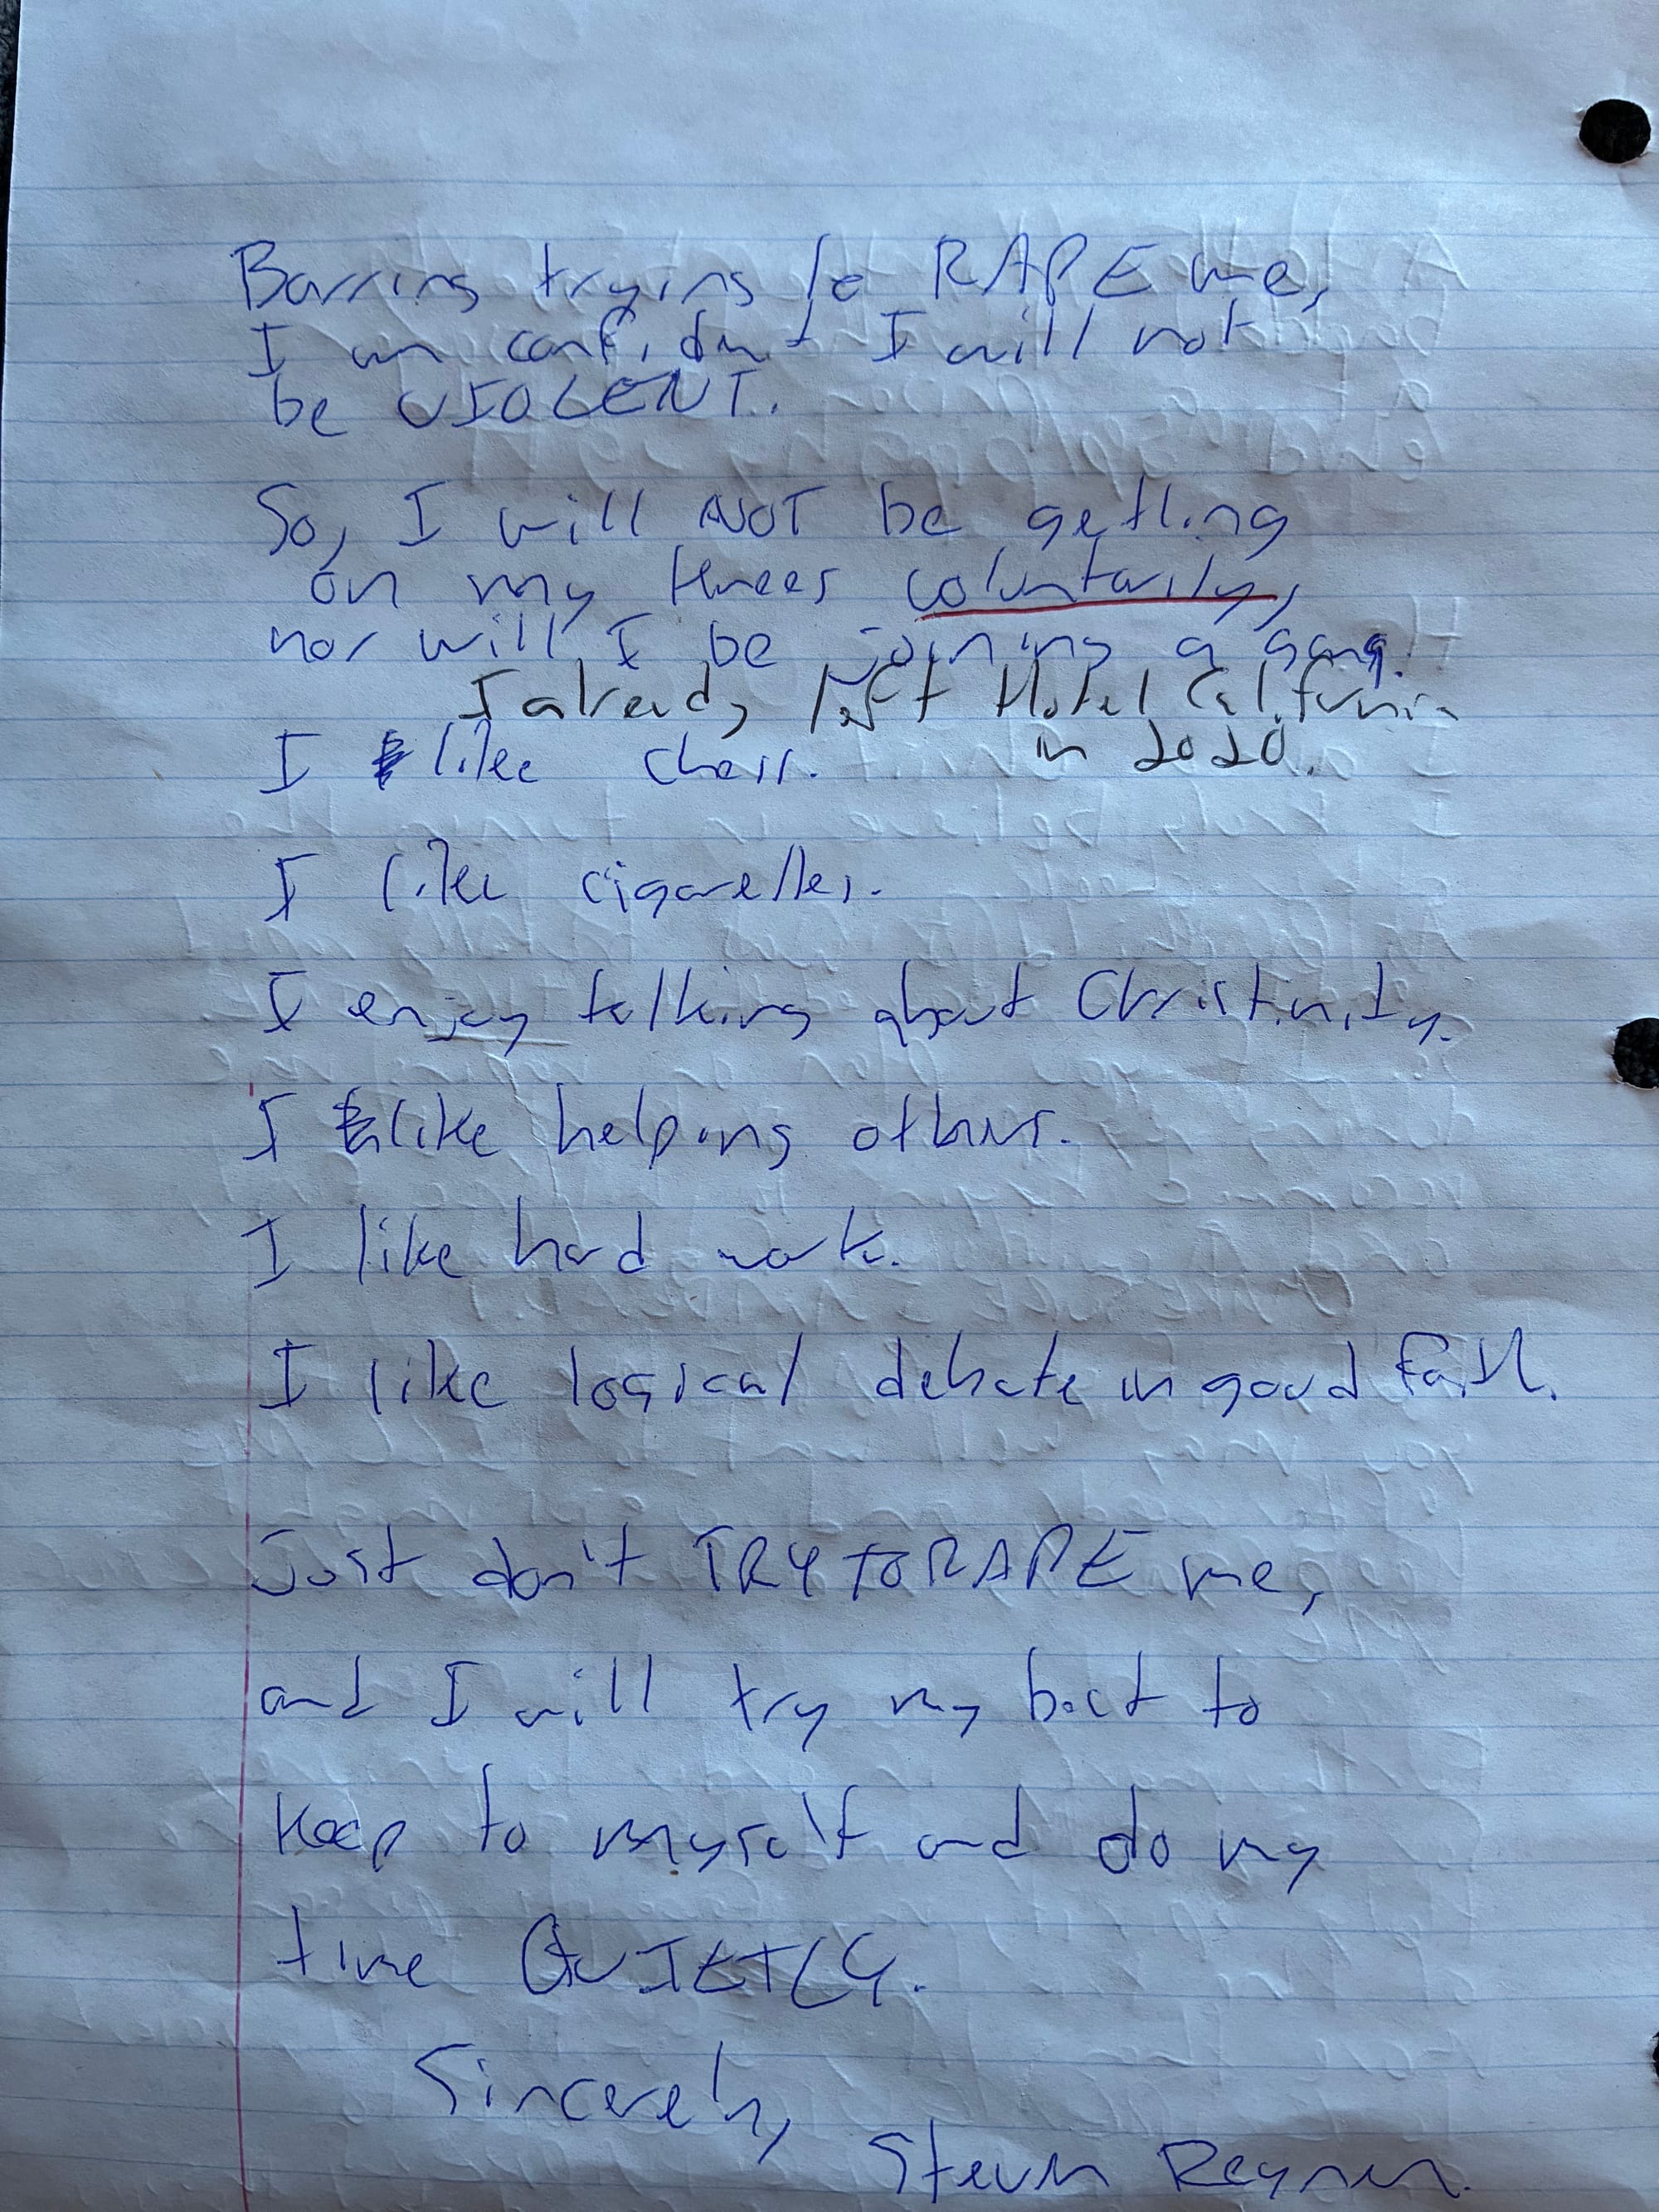 Barring trying to RAPE me,
I am confident I will not
be VIOLENT.
So, I will NOT be getting
on my knees voluntarily,
nor will I be joining a gang.
I already left Hotel California
in 2020.
I like chess.
I like cigarettes.
I enjoy talking about Christinity.
I like helping others.
I like hard work.
I like logical debate in good faith.
Just don't TRY TO RAPE me,
and I will try my best to
keep to myself and do my
time QUIETLY.
Sincerely,
Steven